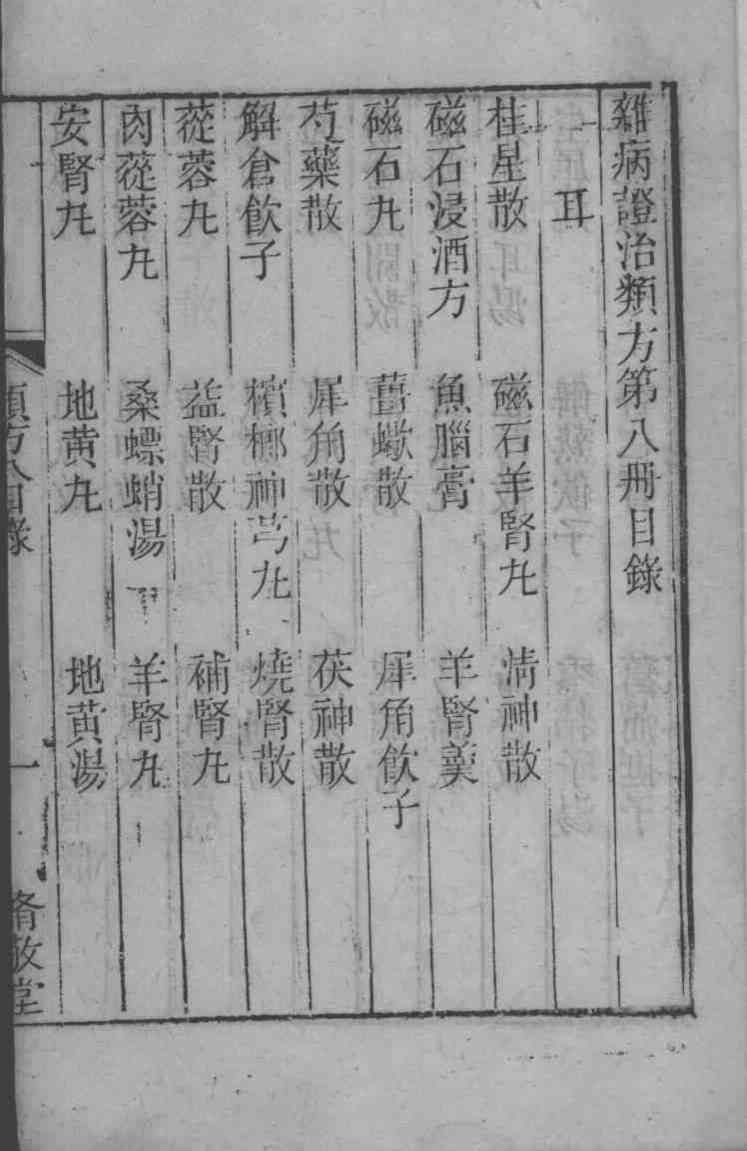 雜病證治類方第八冊目錄
耳
桂星散 磁石羊腎丸 清神散
磁石浸酒方 魚腦膏 羊腎羹
磁石丸 蠍散 犀角飲子
芍藥散 犀角散 茯神散
解倉飲子 檳榔神芎丸 燒腎散
蓯蓉丸 益腎散 補腎丸
肉蓯蓉丸 桑螵蛸湯 羊腎丸
安腎丸 地黃丸 地黃湯
類方八目錄 一 脩敬堂